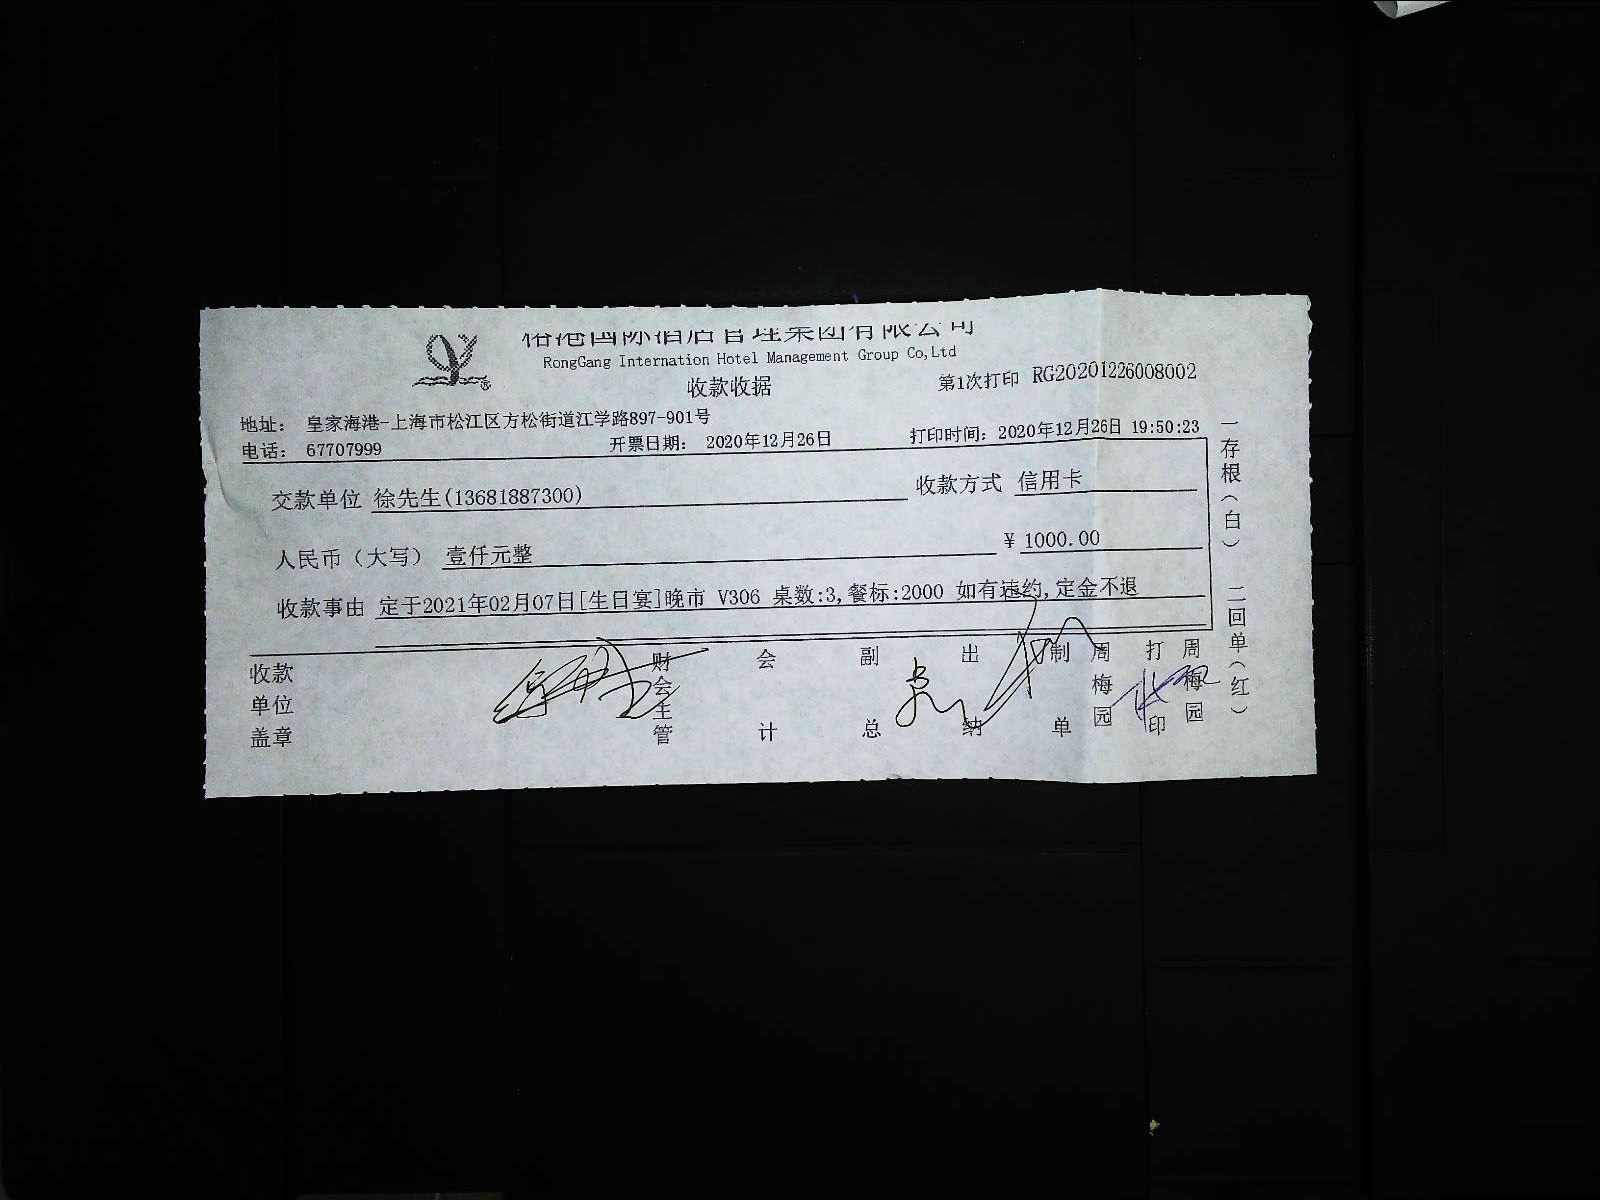 国际酒店管理集团有限公司
RongGang Internation Hotel Management Group Co,Ltd
收款收据
第1次打印 RG20201226008002
地址: 皇家海港-上海市松江区方松街道江学路897-901号
电话: 67707999 开票日期: 2020年12月26日 打印时间: 2020年12月26日 19:50:23
交款单位 徐先生(13681887300) 收款方式 信用卡
人民币(大写) 壹仟元整 ¥ 1000.00
收款事由 定于2021年02月07日[生日宴]晚市 V306 桌数:3,餐标:2000 如有违约,定金不退
收款单位盖章 财会主管 会计 副总 出纳 制单 周梅园 打印 周梅园
一存根(白) 二回单(红)